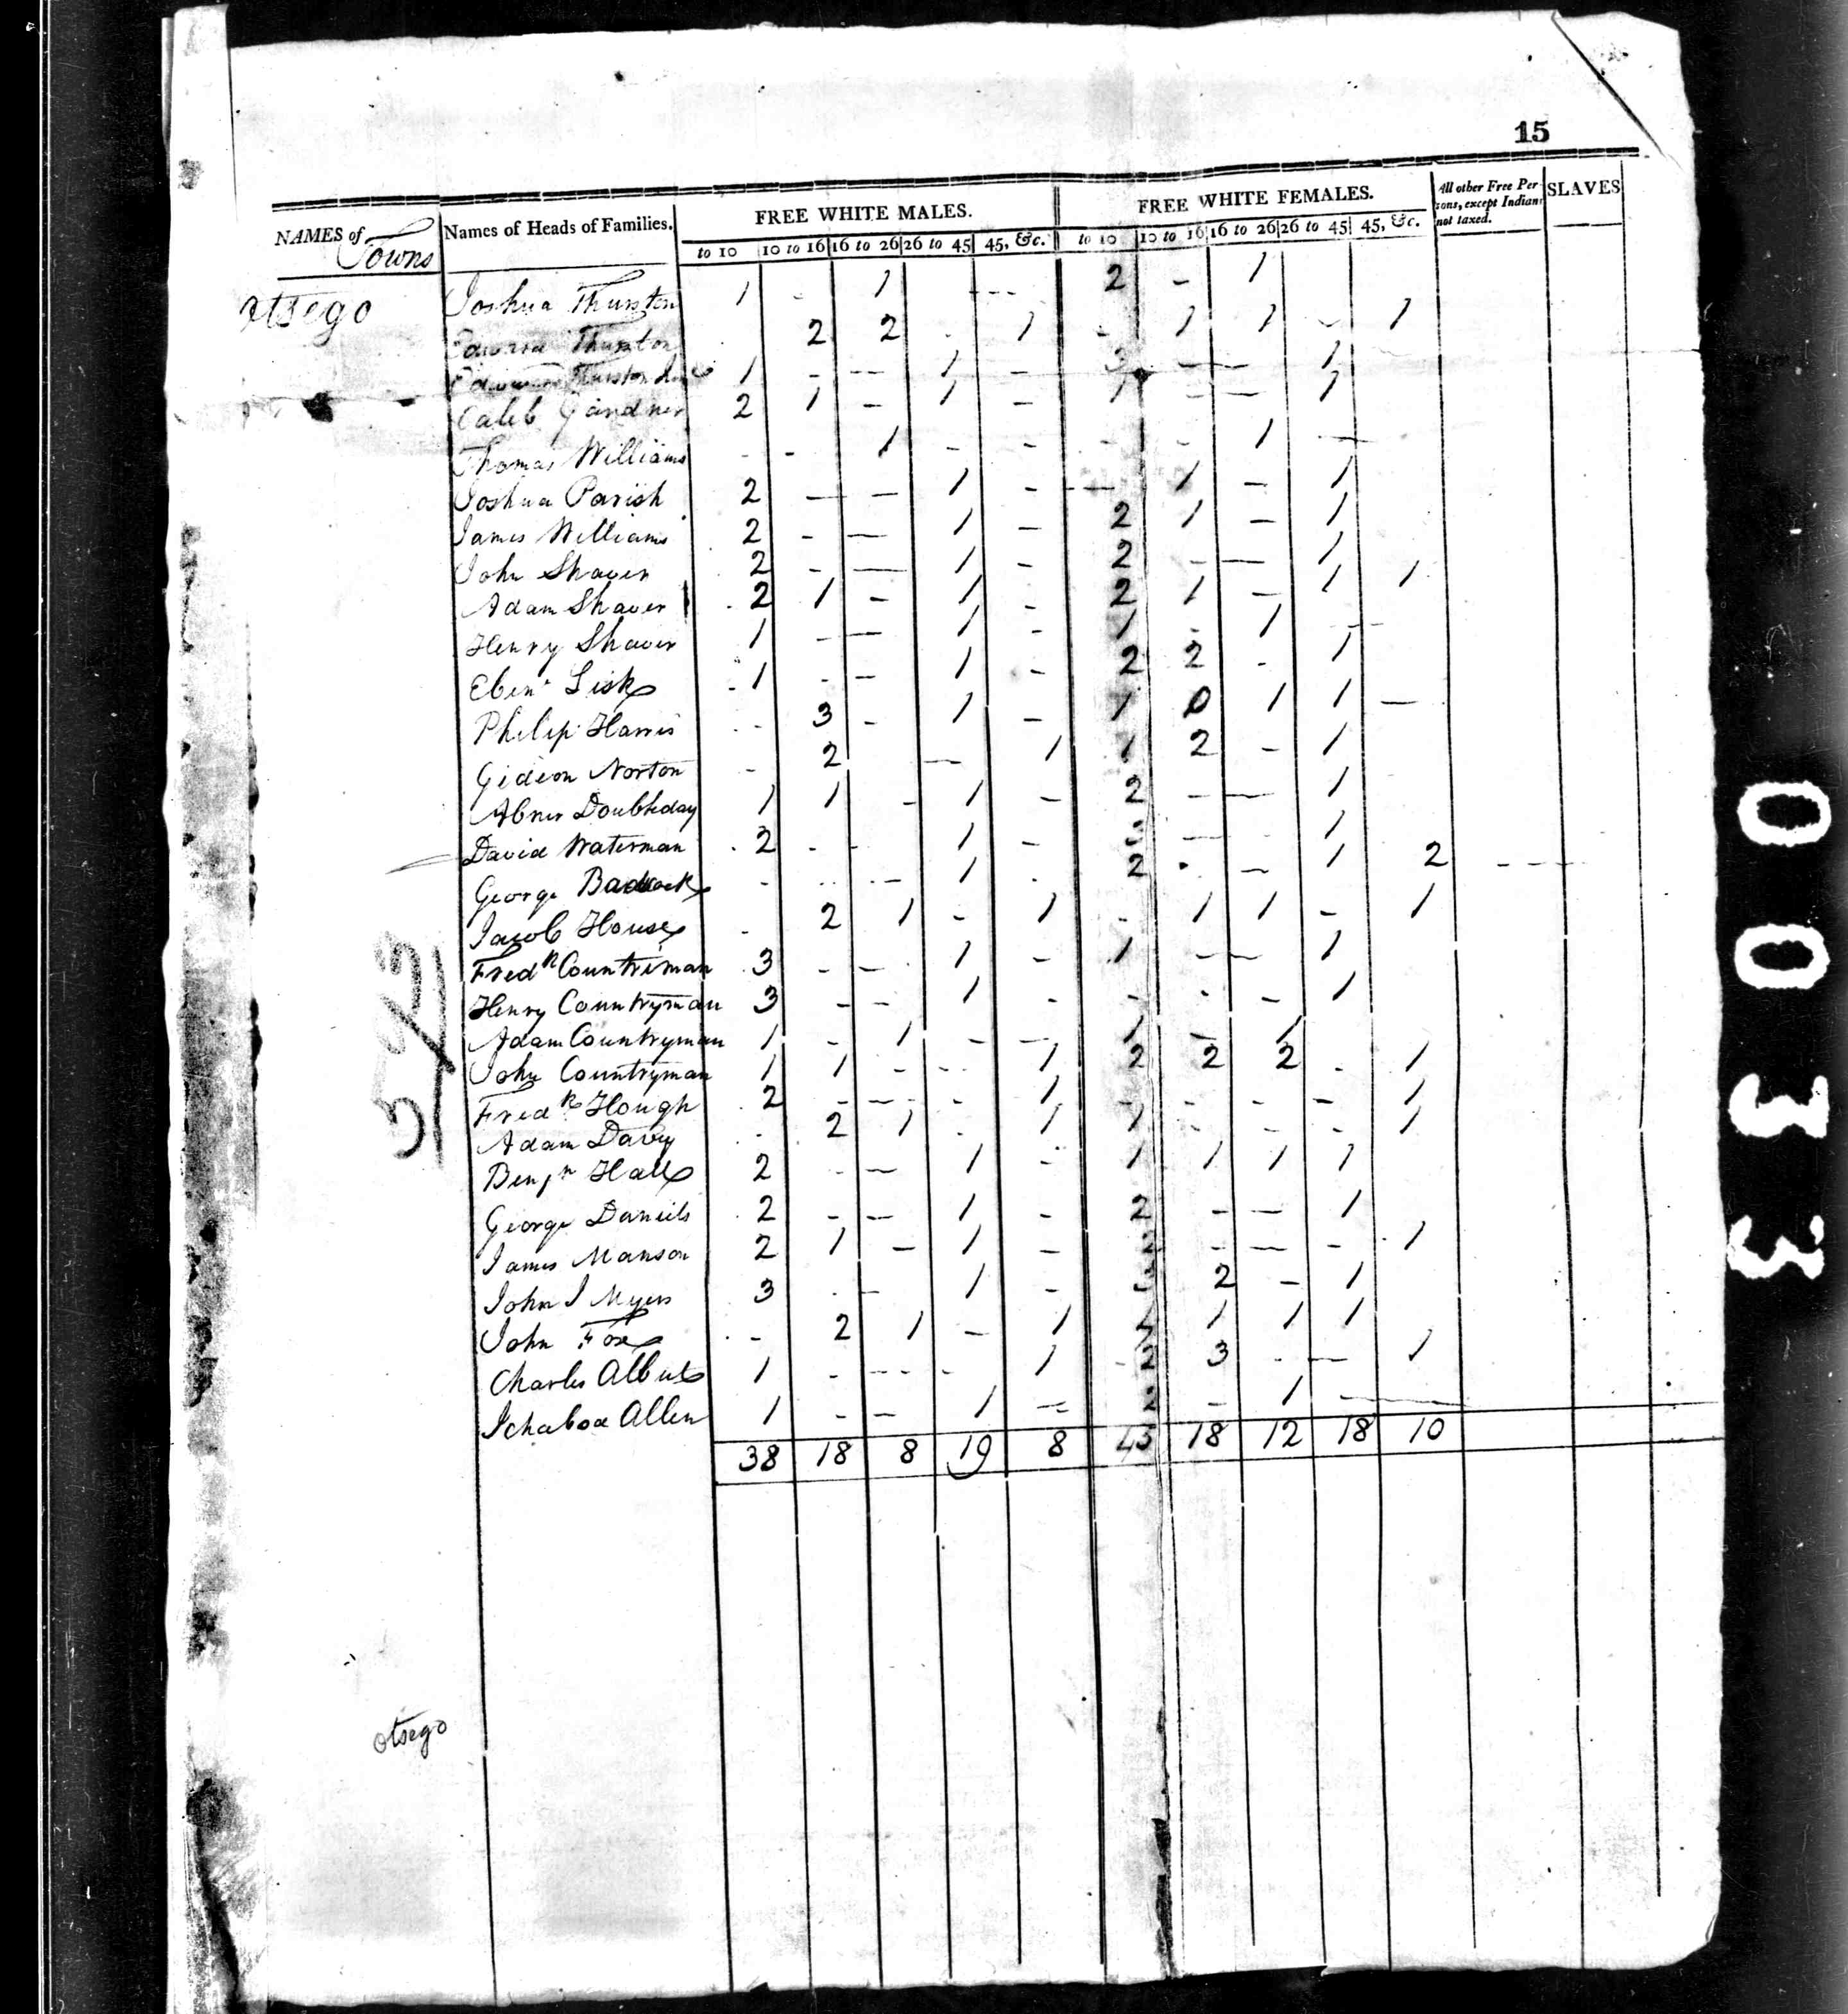 15
NAMES of Towns Names of Heads of Families. FREE WHITE MALES. FREE WHITE FEMALES. All other Free Persons, except Indians not taxed. SLAVES
to 10 10 to 16 16 to 26 26 to 45 45, &c. to 10 10 to 16 16 to 26 26 to 45 45, &c.
Otsego Joshua Thurston 1 - 1 --- 2 - 1
Edward Thurston 2 2 - 1 - 1 1 - 1
Edward Thurston 1 - -- 1 - 3 - -- 1
Caleb Gardner 2 1 - 1 - 1 - -- 1
Thomas Williams - - 1 - - - - 1 -
Joshua Parish 2 - - 1 - - 1 - 1
James Williams 2 - - 1 - 2 1 - 1
John Shaver 2 - - 1 - 2 - - 1
Adam Shaver 2 1 - 1 - 2 1 - 1 1
Henry Shaver 1 - - 1 - 1 - 1 -
Ebenr Lisk 1 - - 1 - 2 2 - 1
Philip Harris - 3 - 1 - 1 0 1 1 -
Gideon Norton - 2 - 1 1 2 - 1
Abner Doubleday 1 1 - 1 - 2 - - 1
David Waterman 2 - - 1 - - - 1
George Badcock - - - 1 - 2 - - 1 2 - - -
Jacob House - 2 1 - 1 - 1 1 - 1
Fredk Countriman 3 - - 1 - 1 - - 1
Henry Countryman 3 - - 1 - - - - 1
Adam Countryman 1 - 1 - - 1 - 1
John Countryman 1 1 - - 1 2 2 2 - 1
Fredk Hough 2 - - - 1 - - - - 1
Adam Davy - 2 1 - 1 1 - - - 1
Benjn Hall 2 - - 1 - 1 1 1 1
George Daniels 2 - - 1 - 2 - - 1
James Manson 2 1 - 1 - 2 - - - 1
John J Myers 3 - - 1 - 2 - 1
John Fox - 2 1 - 1 1 1 1
Charles Alberts 1 - - - 1 2 3 - - 1
Ichabod Allen 1 - - 1 - 2 - 1 -
38 18 8 19 8 43 18 12 18 10
otsego
0033